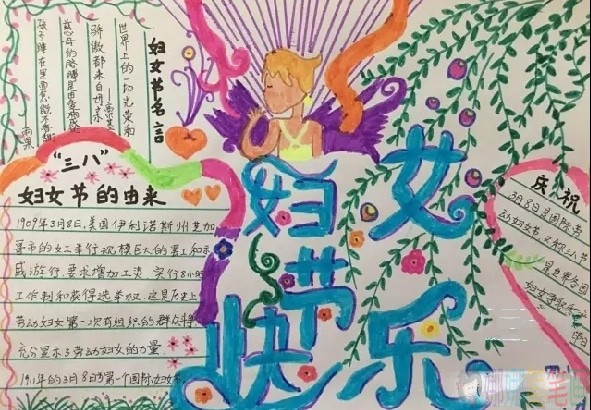 妇女节名言
世界上的一切光荣和
骄傲都来自母亲
高尔基
慈母的胳膊是由爱构成
孩子睡在里面怎能不香甜
雨果
“三八”
妇女节的由来
1909年3月8日,美国伊利诺斯州芝加
哥市的女工举行规模巨大的罢工和示
威游行,要求增加工资,实行8小时
工作制和获得选举权,这是历史上
劳动妇女第一次有组织的群众
充分显示了劳动妇女的力量
1911年的3月8日为第一个国际妇女
妇女
节
快乐
庆祝
3月8是国际劳
动妇女节又称三八节
是世界各国
妇女